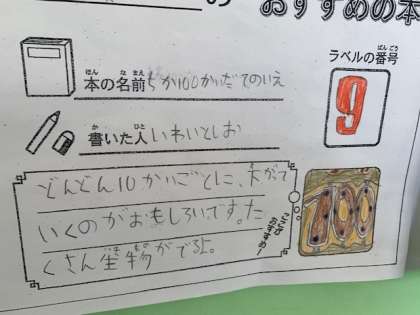 の おすすめの本
ラベルの番号
ばんごう
9
本の名前 ちか100かいだてのいえ
ほん なまえ
書いた人 いわいとしお
か ひと
どんどん10かいごとに、下がて
いくのがおもしろいです。た
くさん生き物がでる。
ここがおすすめ!
100